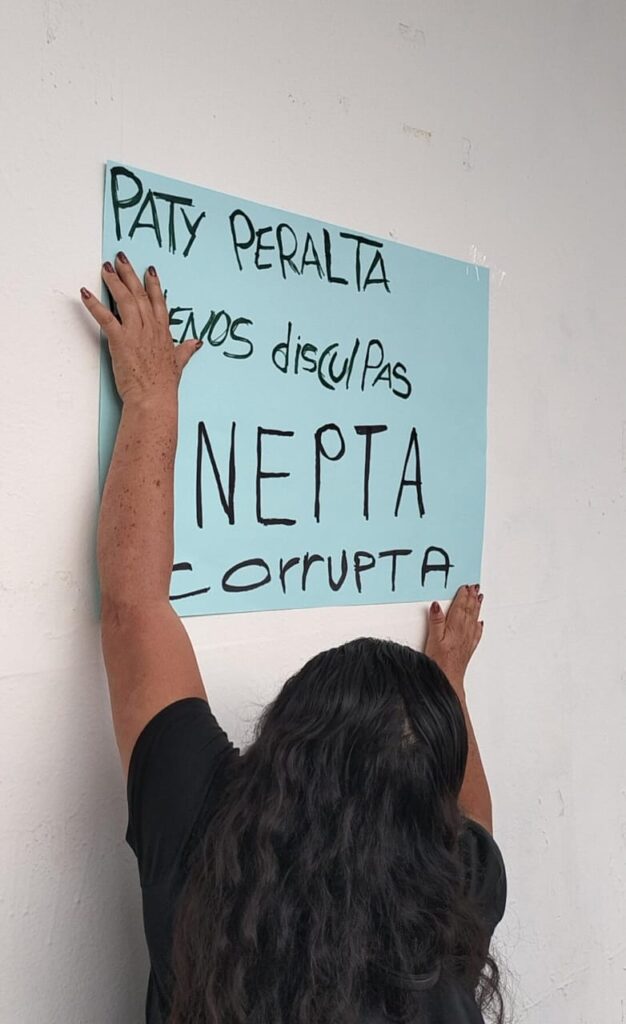 PATY PERALTA
ENOS disculPAS
NEPTA
corruPTA